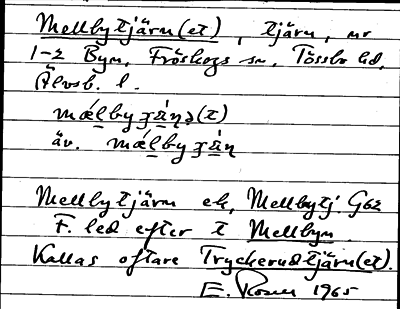 Mellbytjärn(et), tjärn, nr
1-2 Byn, Fröskogs sn, Tössbo hd,
Älvsb. l.
mǽlbyʒä́ṇə(t)
äv. mǽlbyʒä́ṇ
Mellbytjärn ek, Mellbytj. G62
F. led efter t Mellbyn.
Kallas oftare Tryckerudtjärn(et).
E. Rosen 1965